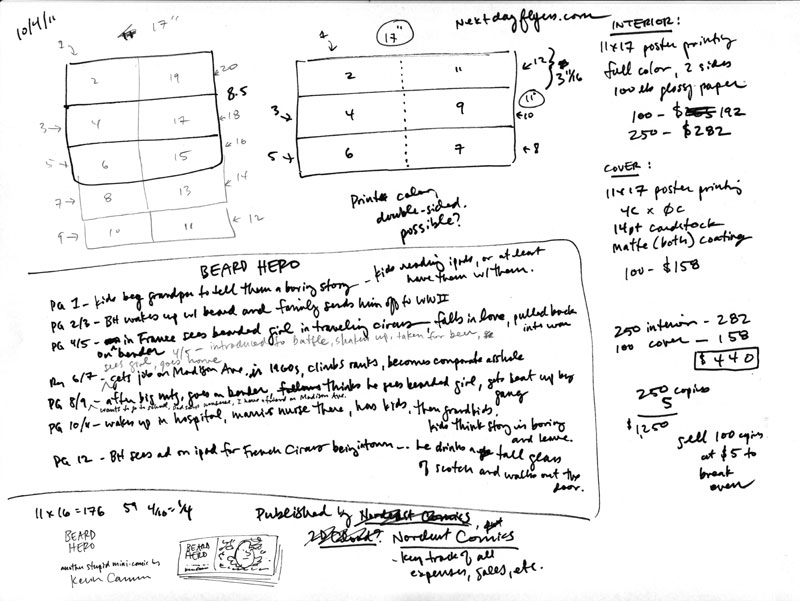 10/4/11
17"
1
2 19
20
8.5
3 4 17
18
5 6 15
16
7 8 13
14
9 10 11
12
nextdayflyers.com
1
17"
2 11
12
3 11/16
11"
3 4 9
10
5 6 7
8
Print color,
double-sided.
possible?
INTERIOR:
11x17 poster printing
full color, 2 sides
100 lb glossy paper
100 - $ 192
250 - $282
COVER:
11x17 poster printing
4c x 0c
14pt cardstock
Matte (both) coating
100 - $158
250 interior - 282
100 cover - 158
$440
250 copies
5
$1,250
sell 100 copies
at $5 to
break
even
BEARD HERO
PG 1 - kids beg grandpa to tell them a boring story - kids reading ipads, or at least
have them w/ them.
PG 2/3 - BH wakes up w/ beard and family sends him off to WW II
PG 4/5 - in France sees bearded girl in traveling circus, falls in love, pulled back
into war
on bender 4/5 - introduced to battle, shaken up, taken for beer,
sees girl, goes home
PG 6/7 - gets job on Madison Ave. in 1960s, climbs ranks, becomes corporate asshole
PG 8/9 - after big mtg, goes on bender, thinks he sees bearded girl, gets beat up by
gang
wants to go to school, dad says nonsense, I have a friend on Madison Ave.
PG 10/11 - wakes up in hospital, marries nurse there, has kids, then grandkids.
kids think story is boring
and leave.
PG 12 - BH sees ad on ipad for French Circus being in town... he drinks a tall glass
of scotch and walks out the
door.
11 x 16 = 176
Published by Nordeast Comics
Nordeast Comics
- keep track of all
expenses, sales, etc.
BEARD
HERO
another stupid mini-comic by
Kevin Cannon
BEARD
HERO